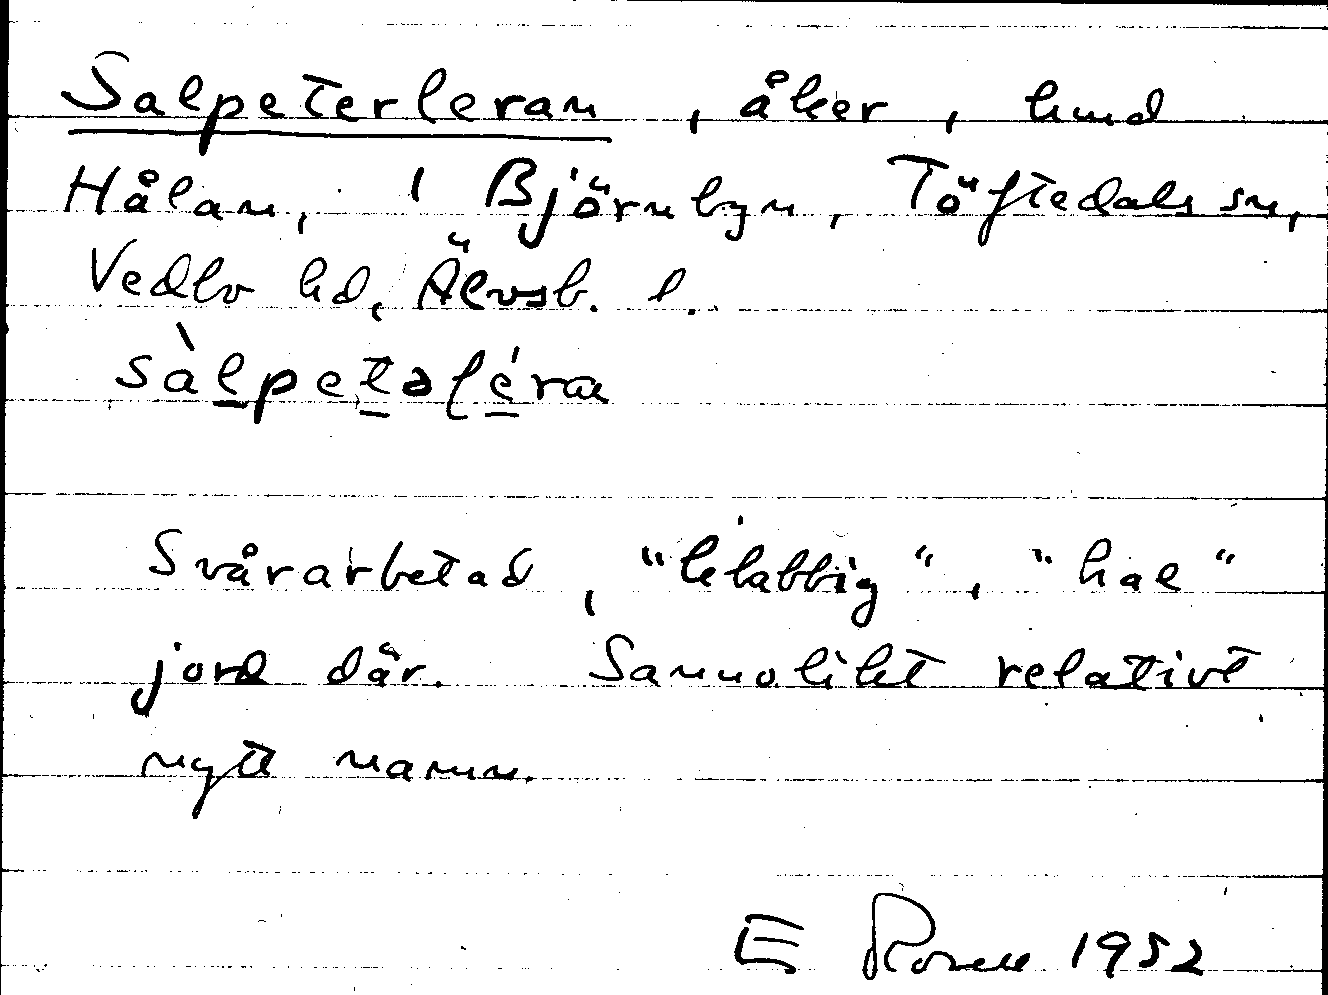 Salpeterleran, åker, hmd
Hålan, 1 Björnbyn, Töftedals sn,
Vedbo hd, Älvsb. l.
sàlpetəléra
Svårarbetad, "klabbig", "hal"
jord där. Sannolikt relativt
nytt namn.
E 1952